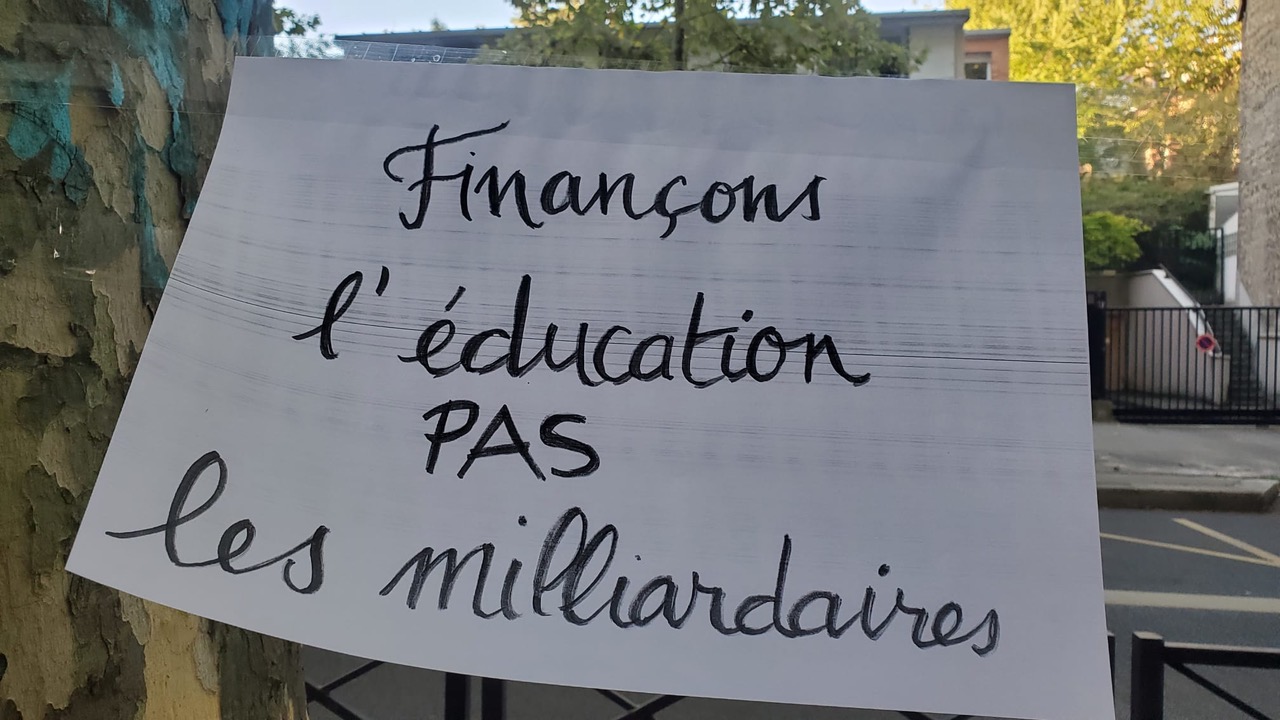 Finançons
l'éducation
PAS
les milliardaires